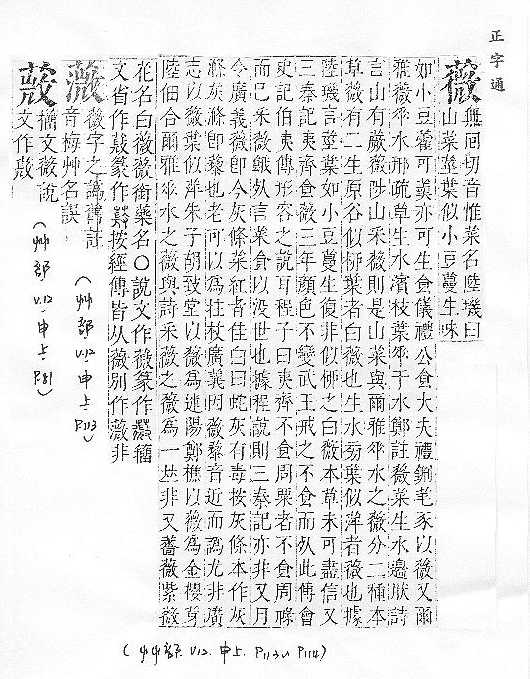 正字通
薇 無回切音惟菜名陸璣曰
山菜莖葉似小豆蔓生味
如小豆藿可羹亦可生食儀禮公食大夫禮鉶芼豕以薇又爾
雅薇垂水邢疏草生水濱枝葉垂于水鄭註薇菜生水邊肰詩
言山有蕨薇陟山采薇則是山菜與爾雅垂水之薇分二種本
草薇有二生原谷似柳葉者白薇也生水旁葉似萍者薇也據
陸璣言莖葉如小豆蔓生復非似柳之白薇本草未可盡信又
三秦記夷齊食薇三年顏色不變武王戒之不食而死此傅會
史記伯夷傳形容之說耳程子曰夷齊不食周粟者不食周祿
而已采薇餓死言菜食以沒世也據程說則三秦記亦非又月
令廣義薇卽今灰條菜紅者佳白曰蛇灰有毒按灰條本作灰
藋灰藋卽藜也老可以為拄杖廣義因薇藜音近而譌尤非廣
志以薇葉似萍朱子胡致堂以薇為迷陽鄭樵以薇為金櫻芽
陸佃合爾雅垂水之薇與詩采薇之薇為一丛非又薔薇紫薇
花名白薇薇銜藥名○說文作薇篆作籀
文省作篆作按經傳皆从薇別作薇非
(艸部 V12.申上. P113~P114)
薇 薇字之譌舊註
音梅艸名誤
(艸部 V12.申上 P113)
籀文薇說
文作
(艸部 V12.申上. P81)